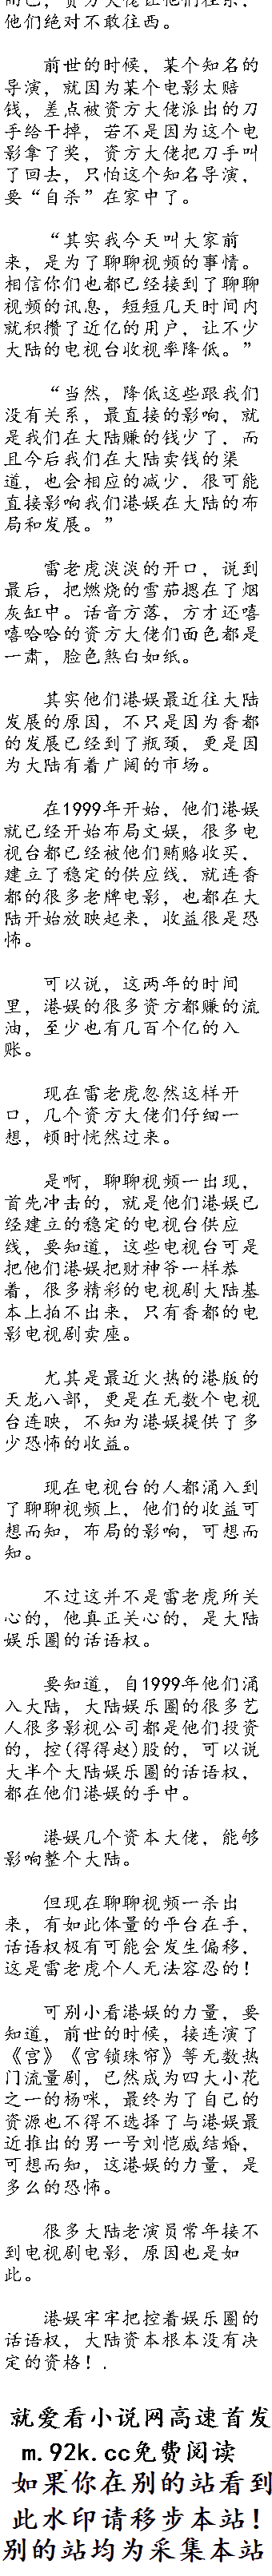 而已，资方大佬让他们往东，
他们绝对不敢往西。
前世的时候，某个知名的
导演，就因为某个电影太赔
钱，差点被资方大佬派出的刀
手给干掉，若不是因为这个电
影拿了奖，资方大佬把刀手叫
了回去，只怕这个知名导演，
要“自杀”在家中了。
“其实我今天叫大家前
来，是为了聊聊视频的事情。
相信你们也都已经接到了聊聊
视频的讯息，短短几天时间内
就积攒了近亿的用户，让不少
大陆的电视台收视率降低。”
“当然，降低这些跟我们
没有关系，最直接的影响，就
是我们在大陆赚的钱少了，而
且今后我们在大陆卖钱的渠
道，也会相应的减少，很可能
直接影响我们港娱在大陆的布
局和发展。”
雷老虎淡淡的开口，说到
最后，把燃烧的雪茄摁在了烟
灰缸中。话音方落，方才还嘻
嘻哈哈的资方大佬们面色都是
一肃，脸色煞白如纸。
其实他们港娱最近往大陆
发展的原因，不只是因为香都
的发展已经到了瓶颈，更是因
为大陆有着广阔的市场。
在1999年开始，他们港娱
就已经开始布局文娱，很多电
视台都已经被他们贿赂收买，
建立了稳定的供应线，就连香
都的很多老牌电影，也都在大
陆开始放映起来，收益很是恐
怖。
可以说，这两年的时间
里，港娱的很多资方都赚的流
油，至少也有几百个亿的入
账。
现在雷老虎忽然这样开
口，几个资方大佬们仔细一
想，顿时恍然过来。
是啊，聊聊视频一出现，
首先冲击的，就是他们港娱已
经建立的稳定的电视台供应
线，要知道，这些电视台可是
把他们港娱把财神爷一样恭
着，很多精彩的电视剧大陆基
本上拍不出来，只有香都的电
影电视剧卖座。
尤其是最近火热的港版的
天龙八部，更是在无数个电视
台连映，不知为港娱提供了多
少恐怖的收益。
现在电视台的人都涌入到
了聊聊视频上，他们的收益可
想而知，布局的影响，可想而
知。
不过这并不是雷老虎所关
心的，他真正关心的，是大陆
娱乐圈的话语权。
要知道，自1999年他们涌
入大陆，大陆娱乐圈的很多艺
人很多影视公司都是他们投资
的，控(得得赵)股的，可以说
大半个大陆娱乐圈的话语权，
都在他们港娱的手中。
港娱几个资本大佬，能够
影响整个大陆。
但现在聊聊视频一杀出
来，有如此体量的平台在手，
话语权极有可能会发生偏移，
这是雷老虎个人无法容忍的！
可别小看港娱的力量，要
知道，前世的时候，接连演了
《宫》《宫锁珠帘》等无数热
门流量剧，已然成为四大小花
之一的杨咪，最终为了自己的
资源也不得不选择了与港娱最
近推出的男一号刘恺威结婚，
可想而知，这港娱的力量，是
多么的恐怖。
很多大陆老演员常年接不
到电视剧电影，原因也是如
此。
港娱牢牢把控着娱乐圈的
话语权，大陆资本根本没有决
定的资格！.
就爱看小说网高速首发
m.92k.cc免费阅读
如果你在别的站看到
此水印请移步本站！
别的站均为采集本站